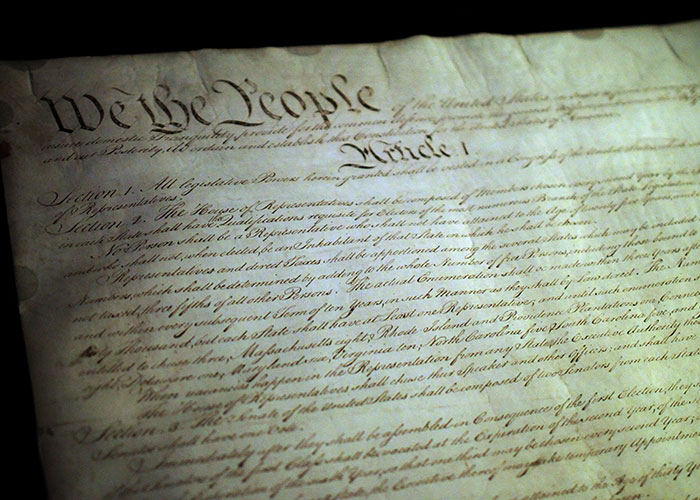 We the People of the United States,
insure domestic Tranquility, provide for the common defence,
and our Posterity, do ordain and establish this Constitution
Article 1
Section 1. All legislative Powers herein granted shall be vested in a Congress of the
of Representatives.
Section 2. The House of Representatives shall be composed of Members chosen every second Year by the
in each State shall have the Qualifications requisite for Electors of the most numerous Branch of the State Legislature
No Person shall be a Representative who shall not have attained to the Age of twenty five Years,
and who shall not, when elected, be an Inhabitant of that State in which he shall be chosen.
Representatives and direct Taxes shall be apportioned among the several States which may be included
Numbers, which shall be determined by adding to the whole Number of free Persons, including those bound
not taxed, three fifths of all other Persons. The actual Enumeration shall be made within three Years
and within every subsequent Term of ten Years, in such Manner as they shall by Law direct. The Number
thirty Thousand, but each State shall have at Least one Representative; and until such enumeration
entitled to chuse three, Massachusetts eight, Rhode Island and Providence Plantations one, Connecticut
eight, Delaware one, Maryland six, Virginia ten, North Carolina five, South Carolina five, and
When vacancies happen in the Representation from any State, the Executive Authority
The House of Representatives shall chuse their Speaker and other Officers; and shall have
Section 3. The Senate of the United States shall be composed of two Senators from each State
Senator shall have one Vote.
Immediately after they shall be assembled in Consequence of the first Election, they
of the Senators of the first Class shall be vacated at the Expiration of the second Year, of the
Expiration of the sixth Year, so that one third may be chosen every second Year;
of any State, the Executive thereof may make temporary Appointments
to the Age of thirty